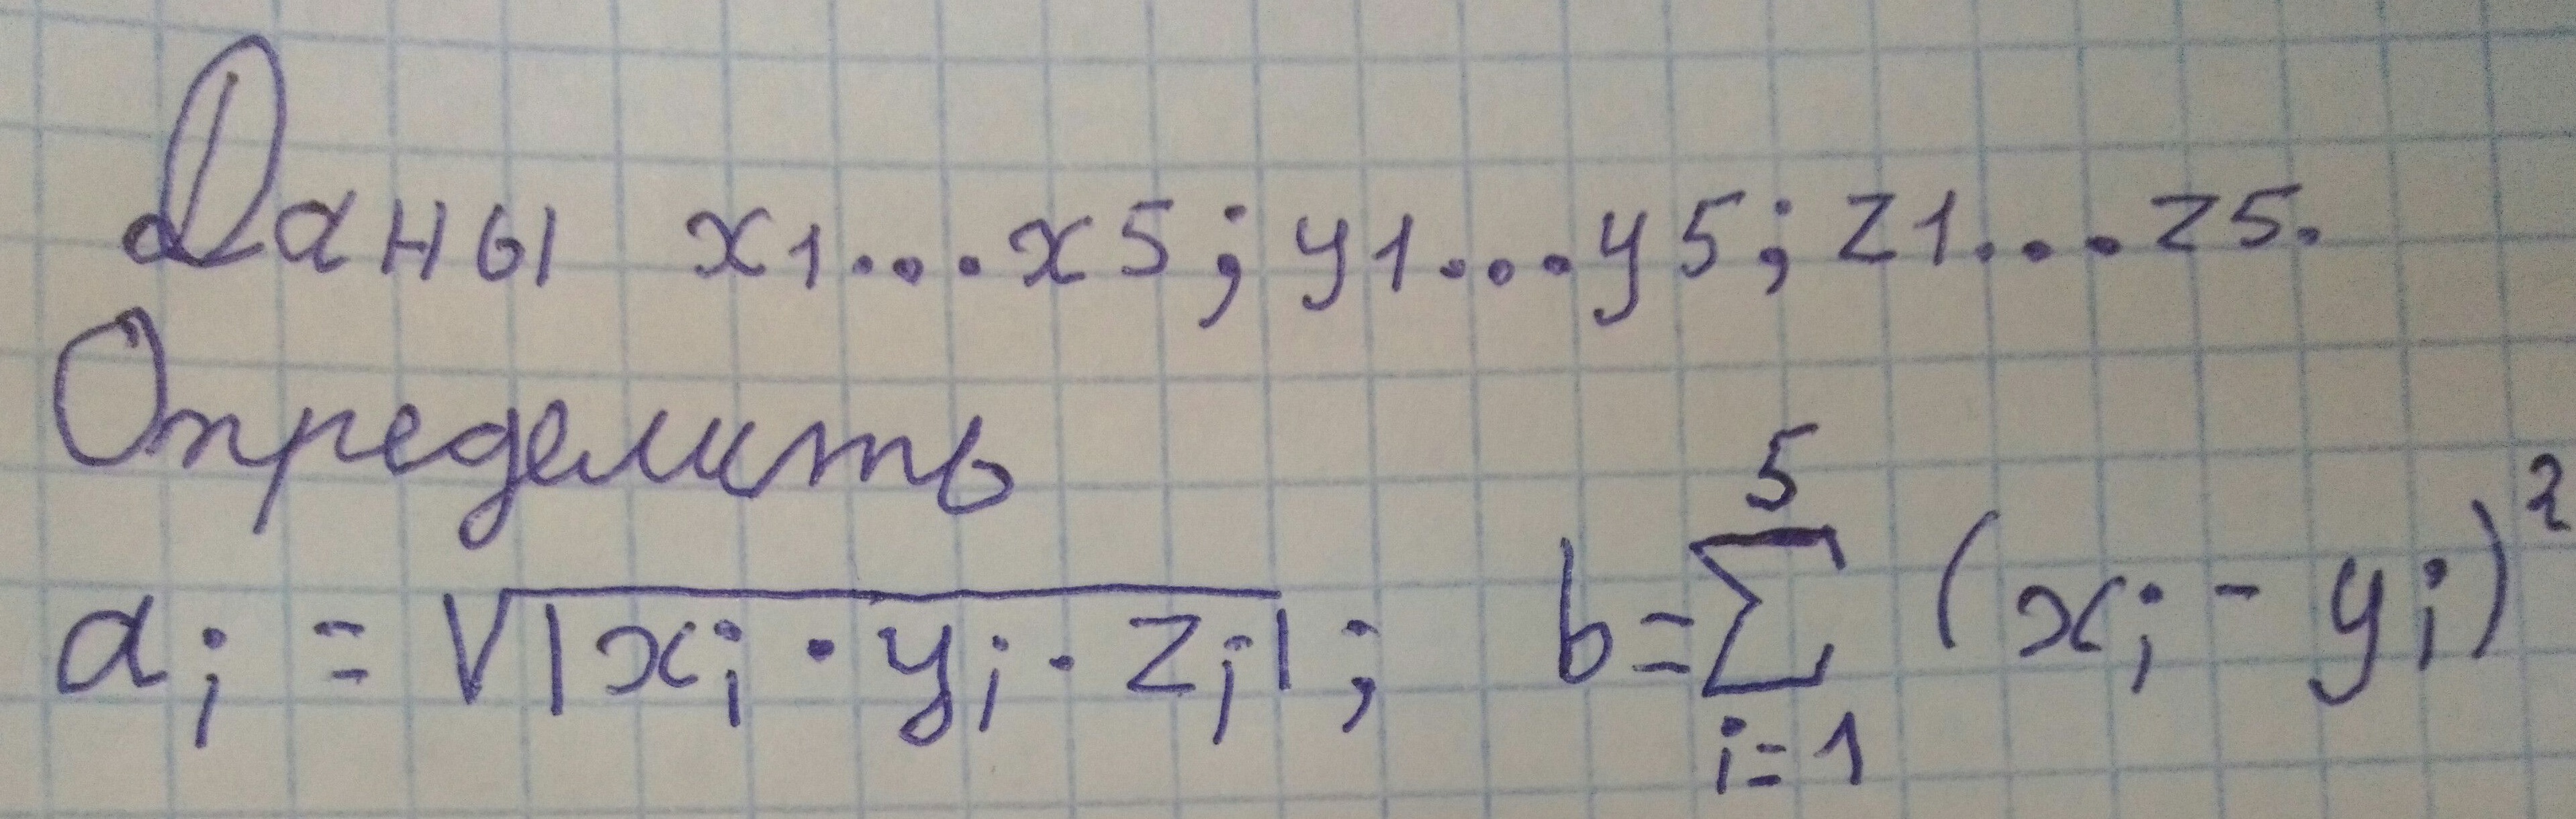 Даны x1...x5; y1...y5; z1...z5.
Определить
aᵢ = √|xᵢ · yᵢ · zᵢ|; b = ∑⁵ᵢ₌₁ (xᵢ - yᵢ)²